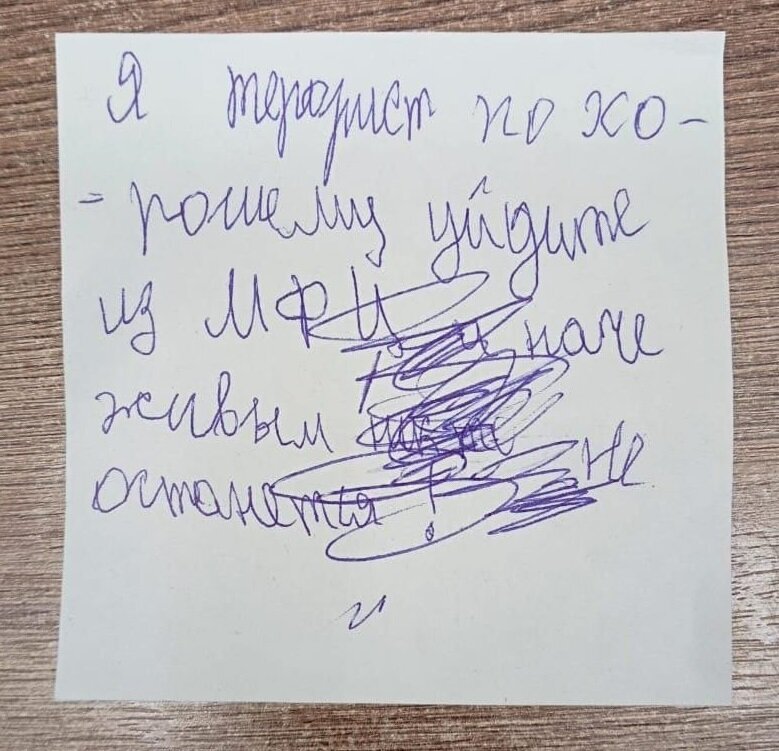 Я терорист по хо-
-рошему уйдите
из МФЦ иначе
живым никто не
останется!
и